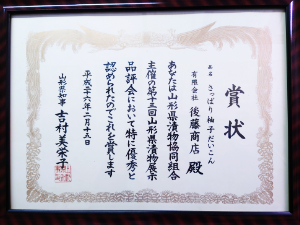 賞状
品名 さっぱり柚子だいこん
有限会社 後藤商店 殿
あなたは山形県漬物協同組合
主催の第十三回山形県漬物展示
品評会において特に優秀と
認められたのでこれを賞します
平成二十六年二月十三日
山形県知事 吉村美栄子